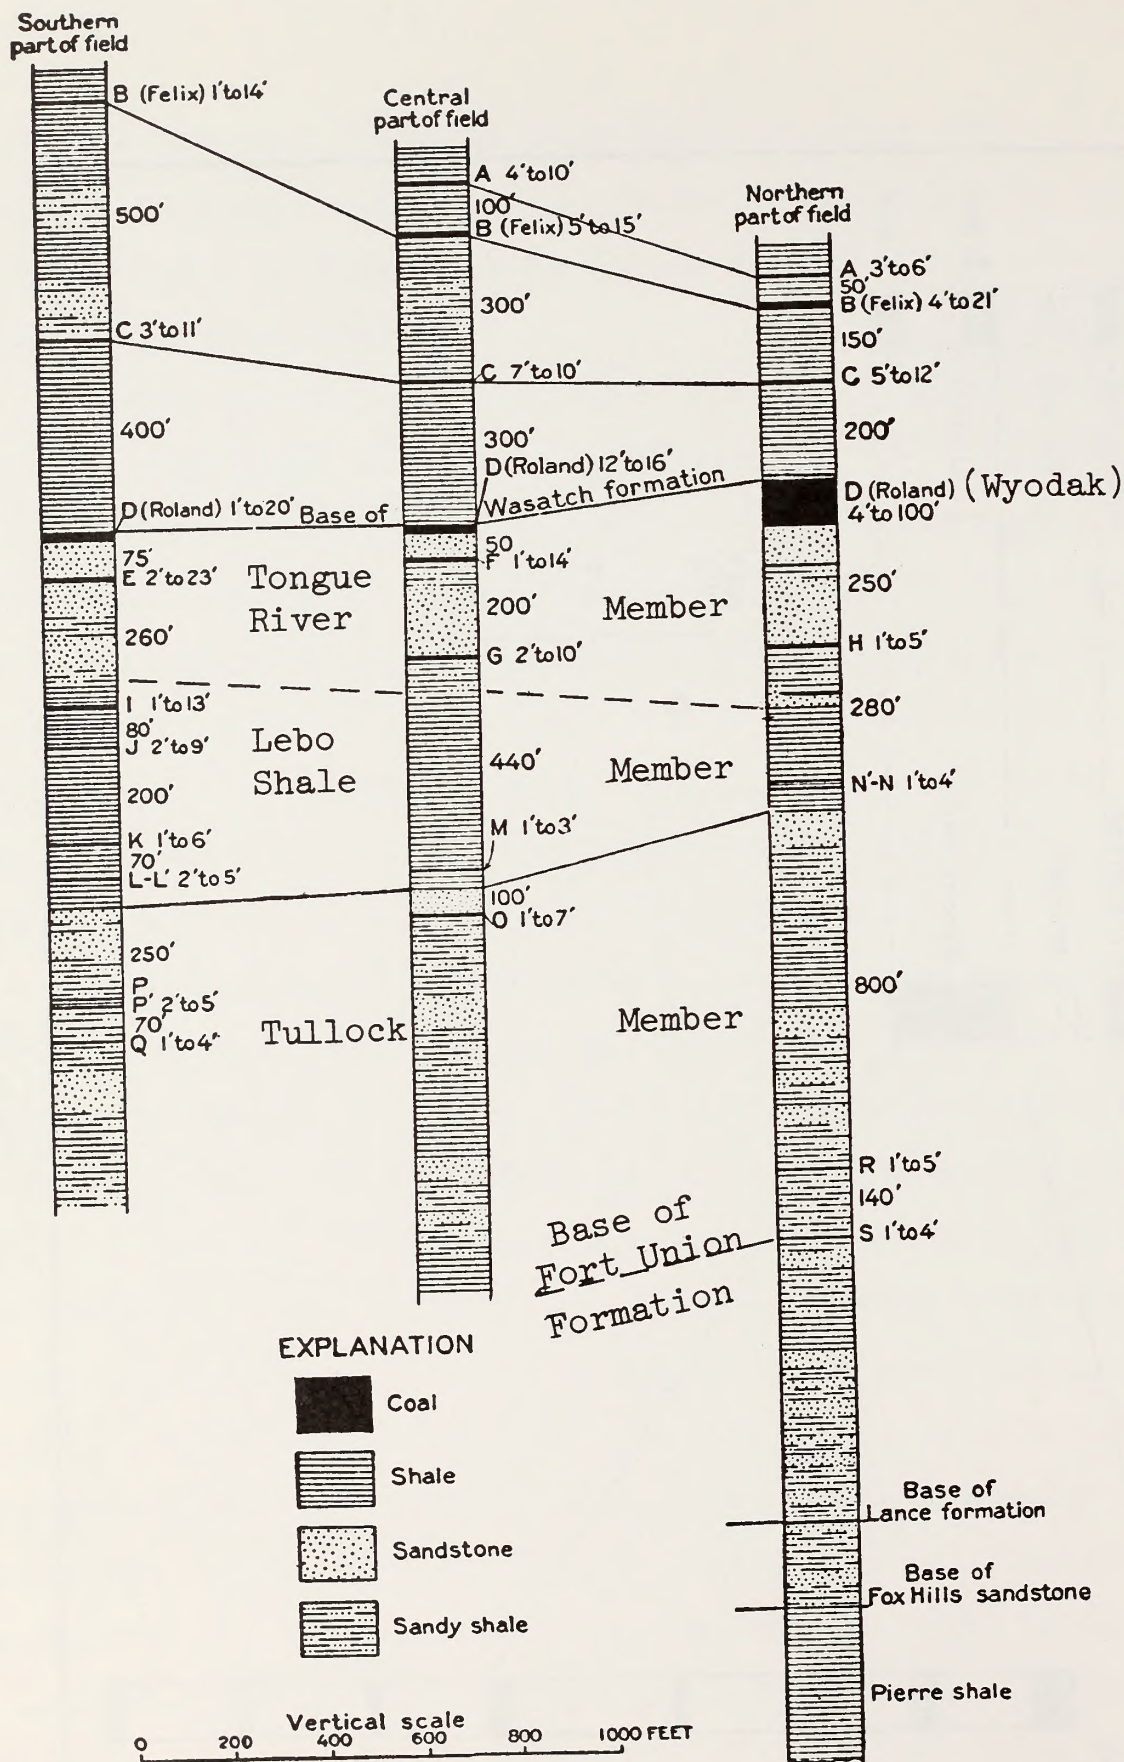 Southern
part of field
B (Felix) 1' to 14'
500'
C 3' to 11'
400'
D (Roland) 1' to 20'
75'
E 2' to 23'
260'
I 1' to 13'
80'
J 2' to 9'
200'
K 1' to 6'
70'
L-L' 2' to 5'
250'
P
P' 2' to 5'
70'
Q 1' to 4'
Central
part of field
A 4' to 10'
100'
B (Felix) 5' to 15'
300'
C 7' to 10'
300'
D (Roland) 12' to 16'
Base of Wasatch formation
50
F 1' to 14'
200'
G 2' to 10'
440'
M 1' to 3'
100'
O 1' to 7'
Northern
part of field
A 3' to 6'
50'
B (Felix) 4' to 21'
150'
C 5' to 12'
200'
D (Roland) (Wyodak)
4' to 100'
250'
H 1' to 5'
280'
N'-N 1' to 4'
800'
R 1' to 5'
140'
S 1' to 4'
Base of
Lance formation
Base of
Fox Hills sandstone
Pierre shale
Tongue
River Member
Lebo
Shale Member
Tullock Member
Base of
Fort Union
Formation
EXPLANATION
Coal
Shale
Sandstone
Sandy shale
Vertical scale
0 200 400 600 800 1000 FEET